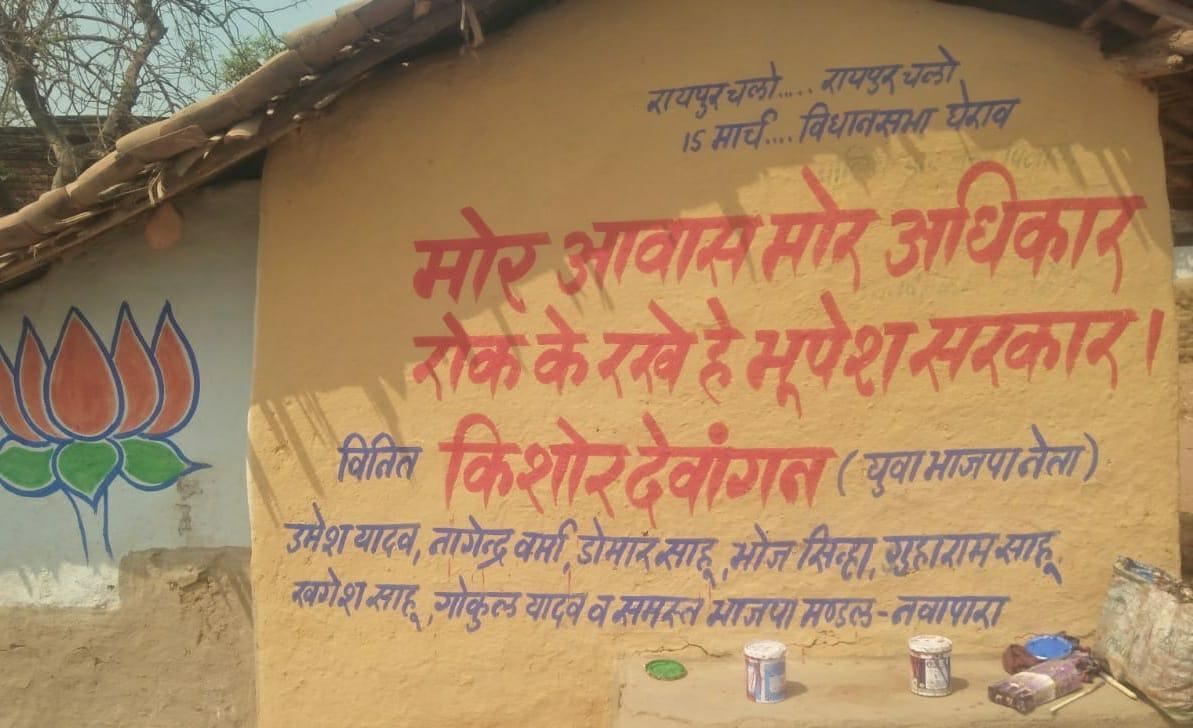 रायपुर चलो..... रायपुर चलो
15 मार्च.... विधानसभा घेराव
मोर आवास मोर अधिकार
रोक के रखे हे भूपेश सरकार।
विनित किशोर देवांगन (युवा भाजपा नेता)
उमेश यादव, नागेन्द्र वर्मा, डोमार साहू, भोज सिन्हा, गुहाराम साहू,
खगेश साहू, गोकुल यादव व समस्त भाजपा मण्डल - नवापारा